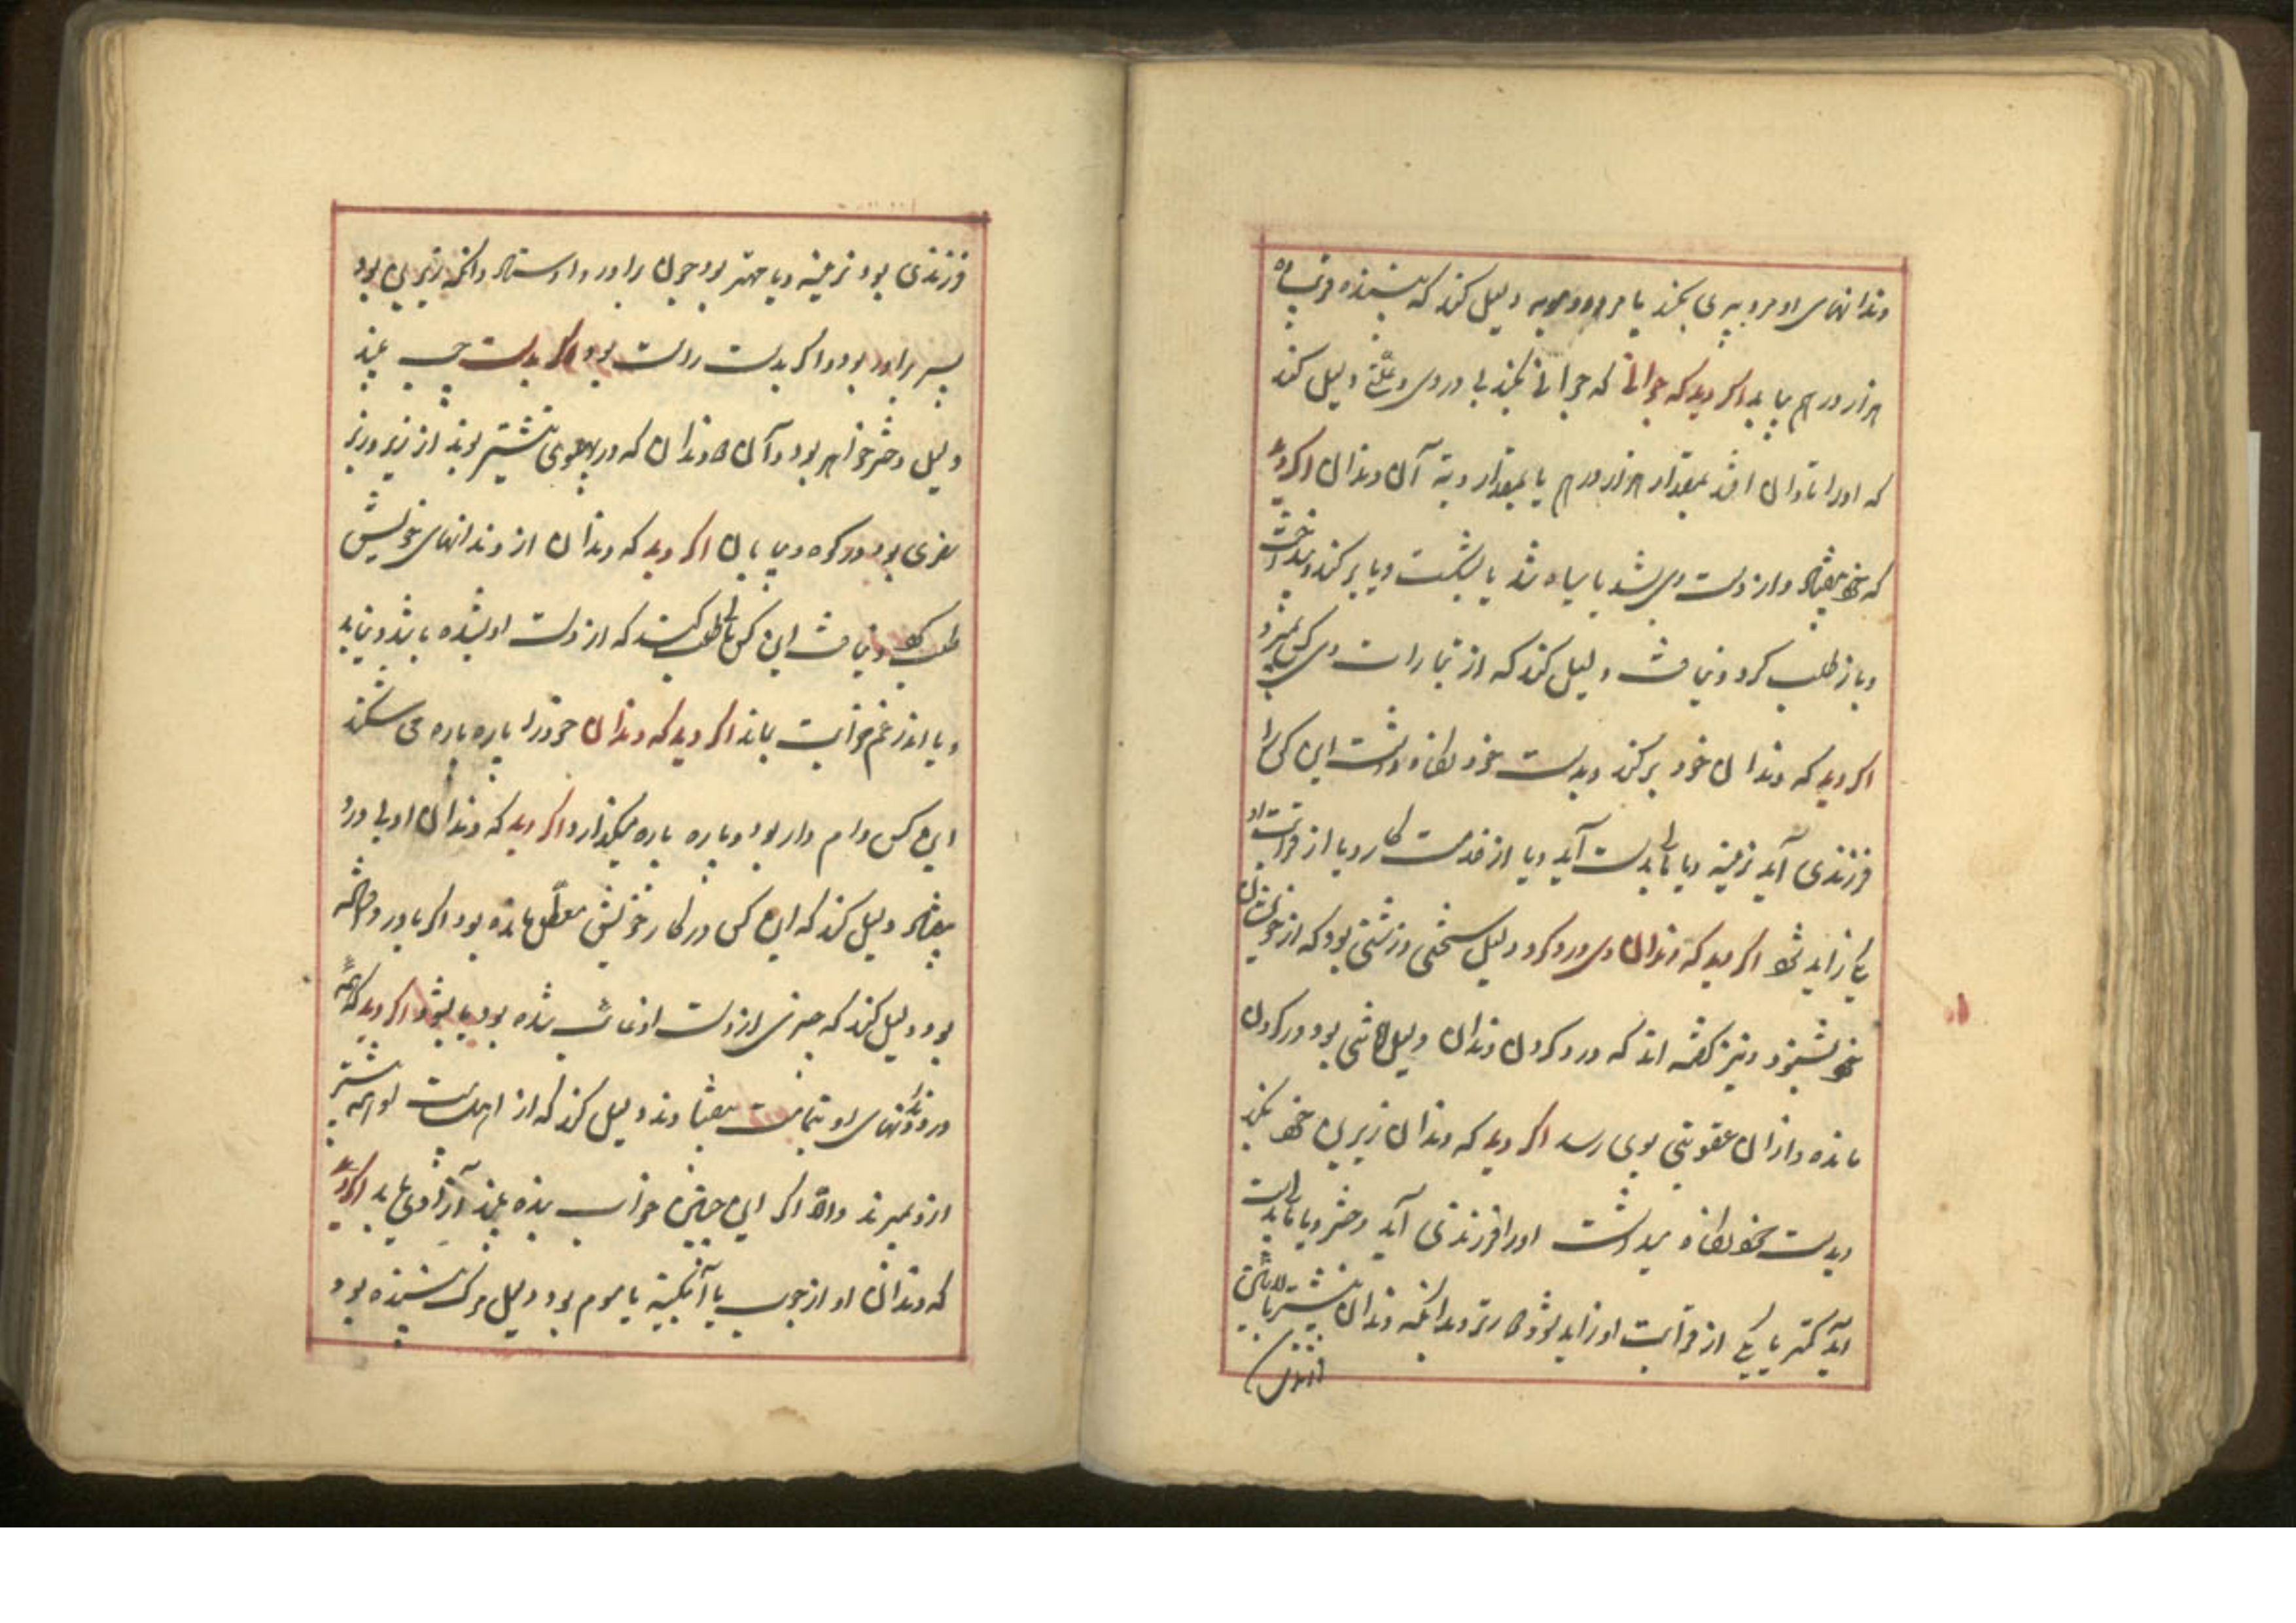 دندانهای او مرد پیری بکند یا مرد دلیل کند که بیننده
هزار درهم بیابد اگر دید که جوانی که جوانی بکند بی دردی و علتی دلیل کند
که او را تاوان افتد بمقدار هزار درهم یا بمقدار دیة آن دندان اگر دید
که بیفتاد و از دست وی بشد یا سیاه شد یا بشکست و یا برکند و بینداخت
و باز طلب کرد و نیافت دلیل کند که از وی کس بمیرد
اگر دید که دندان خود برکند و بدست خود نگاه داشت این کس را
فرزندی آید نرینه و یا مالی بدست آید و یا از خدمت کار و یا از قرابت او
یکی زاید اگر دید که دندان وی درد کرد دلیل سخنی و زشتی بود که از خویشان
خویش شنود و نیز گفته اند که درد کردن دندان دلیل بود در کردن
مانده و از آن عقوبتی بوی رسد اگر دید که دندان زیرین خود بکند
و بدست خود نگاه میداشت او را فرزندی آید دختر و یا مالی بدست
آید کمتر یا یکی از قرابت او زاید و بدانکه دندان پیشتر بالائین
فرزندی بود نرینه و یا مهتر بود چون برادر و استاد و آنکه زیرین بود
پسر برادر بود و اگر بدست راست بود اگر بدست چپ بیند
دلیل دختر خواهر بود و آن دندان که در پهلوی پیشتر بوند از زیر و زبر
سفری بود در کوه و بیابان اگر دید که دندان از دندانهای خویش
طلب کرد و نیافت این کس مالی طلب کند که از دست او بشده باشد و نیابد
و یا اندر غم خواست بماند اگر دید که دندان خود را پاره پاره می شکند
این کس وام دار بود و پاره پاره میگذارد اگر دید که دندان او بی درد
بیفتاد دلیل کند که این کس در کار خویش معطل مانده بود اگر با درد
بود دلیل کند که چیزی از دست او غائب شده بود بیابد اگر دید که همه
دندانهای او تمامت بیفتادند دلیل کند که از اهل بیت او همه پیشتر
ازو بمیرند و الا اگر این چنین خواب بنده بیند آزادی یابد اگر دید
که دندان او از چوب یا آبگینه یا موم بود دلیل مرگ بیننده بود